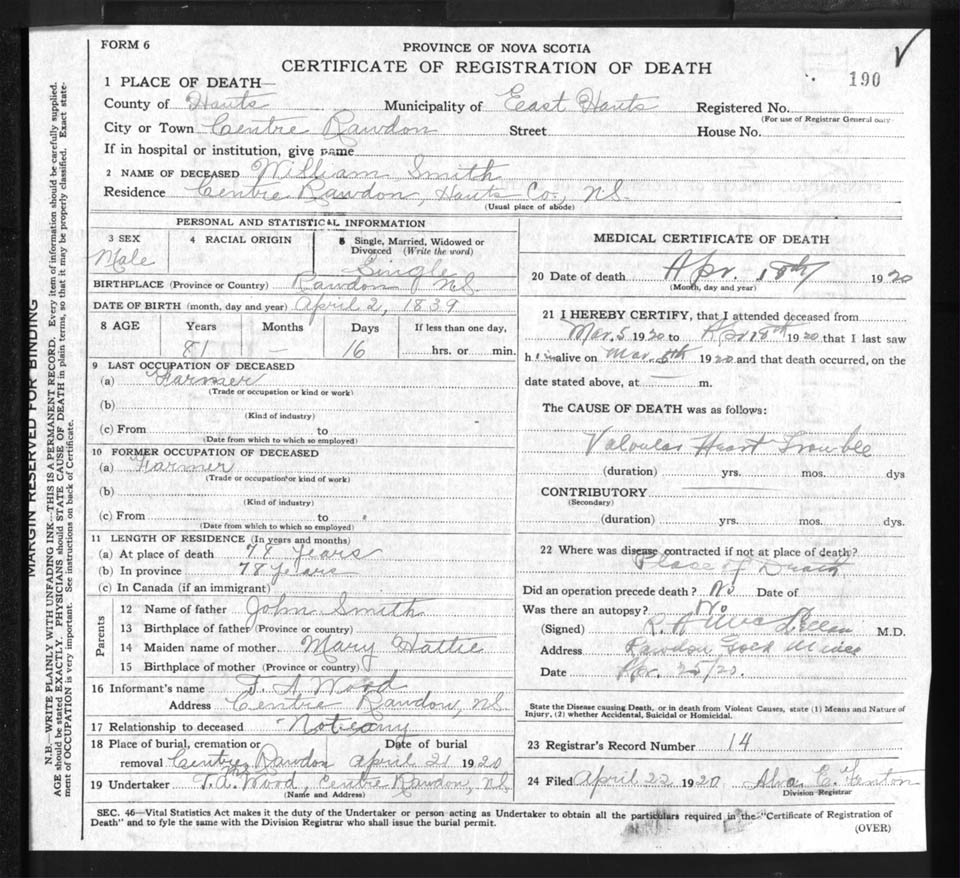 FORM 6
PROVINCE OF NOVA SCOTIA
CERTIFICATE OF REGISTRATION OF DEATH
190
1 PLACE OF DEATH—
County of Hants Municipality of East Hants Registered No.
(For use of Registrar General only)
City or Town Centre Rawdon Street House No.
If in hospital or institution, give name
2 NAME OF DECEASED William Smith
Residence Centre Rawdon, Hants Co., N.S.
(Usual place of abode)
PERSONAL AND STATISTICAL INFORMATION
3 SEX 4 RACIAL ORIGIN 5 Single, Married, Widowed or Divorced (Write the word)
Male Single
BIRTHPLACE (Province or Country) Rawdon N.S.
DATE OF BIRTH (month, day and year) April 2, 1839
8 AGE Years Months Days If less than one day,
81 — 16 hrs. or min.
9 LAST OCCUPATION OF DECEASED
(a) Farmer
(Trade or occupation or kind or work)
(b)
(Kind of industry)
(c) From to
(Date from which to which so employed)
10 FORMER OCCUPATION OF DECEASED
(a) Farmer
(Trade or occupation or kind of work)
(b)
(Kind of industry)
(c) From to
(Date from which to which so employed)
11 LENGTH OF RESIDENCE (In years and months)
(a) At place of death 78 years
(b) In province 78 years
(c) In Canada (if an immigrant)
Parents
12 Name of father John Smith
13 Birthplace of father (Province or country)
14 Maiden name of mother Mary Hattie
15 Birthplace of mother (Province or country)
16 Informant's name T. A. Wood
Address Centre Rawdon, N.S.
17 Relationship to deceased Not any
18 Place of burial, cremation or removal Date of burial
Centre Rawdon April 21 1920
19 Undertaker T. A. Wood, Centre Rawdon, N.S.
(Name and Address)
MEDICAL CERTIFICATE OF DEATH
20 Date of death Apr. 18th 1920
(Month, day and year)
21 I HEREBY CERTIFY, that I attended deceased from
Mar. 5 1920 to Apr 18th 1920 that I last saw
him alive on Mar. 1920 and that death occurred, on the
date stated above, at m.
The CAUSE OF DEATH was as follows:
Valvular Heart Trouble
(duration) yrs. mos. dys
CONTRIBUTORY
(Secondary)
(duration) yrs. mos. dys.
22 Where was disease contracted if not at place of death?
Place of Death
Did an operation precede death? No Date of
Was there an autopsy? No
(Signed) M.D.
Address Rawdon Gold Mines
Date Apr. 25/20.
State the Disease causing Death, or in death from Violent Causes, state (1) Means and Nature of
Injury, (2) whether Accidental, Suicidal or Homicidal.
23 Registrar's Record Number 14
24 Filed April 22 1920 Alva E. Fenton
Division Registrar
SEC. 46—Vital Statistics Act makes it the duty of the Undertaker or person acting as Undertaker to obtain all the particulars required in the "Certificate of Registration of
Death" and to fyle the same with the Division Registrar who shall issue the burial permit.
(OVER)
MARGIN RESERVED FOR BINDING
N.B.—WRITE PLAINLY WITH UNFADING INK—THIS IS A PERMANENT RECORD. Every item of information should be carefully supplied.
AGE should be stated EXACTLY. PHYSICIANS should STATE CAUSE OF DEATH in plain terms, so that it may be properly classified. Exact state-
ment of OCCUPATION is very important. See instructions on back of Certificate.